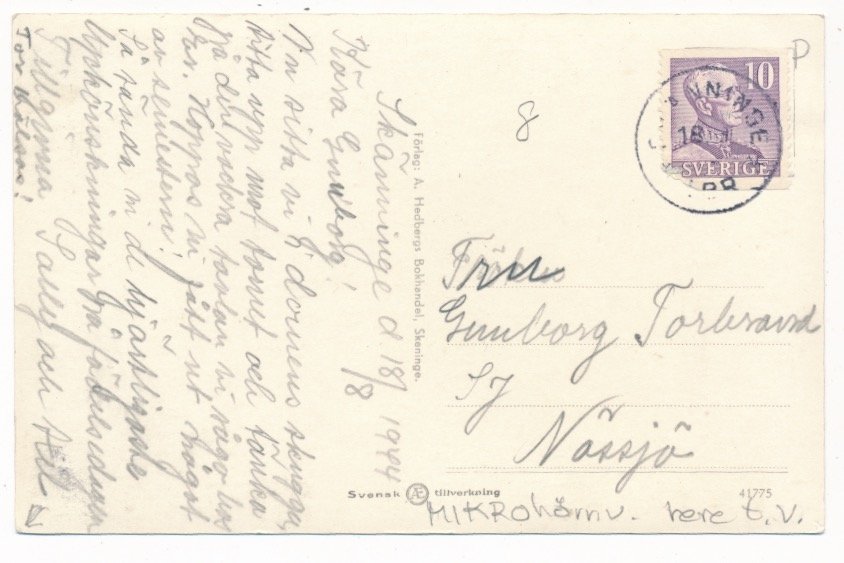 Skänninge d 18/8 1944
Kära Gunborg!
Nu sitta vi i domens skugga,
titta upp mot tornet och tänka
på det vackra
Hoppas ni fått ut något
av semestern!
Så sända vi de hjärtligaste
lyckönskningar på födelsedagen
Sally och
Tor hälsar!
Förlag: A. Hedbergs Bokhandel, Skeninge.
8
P
10
SVERIGE
NNINGE
18
Fru
Gunborg Torbrand
SJ
Nässjö
Svensk Æ tillverkning
41775
MIKROhörnv. nere t.v.